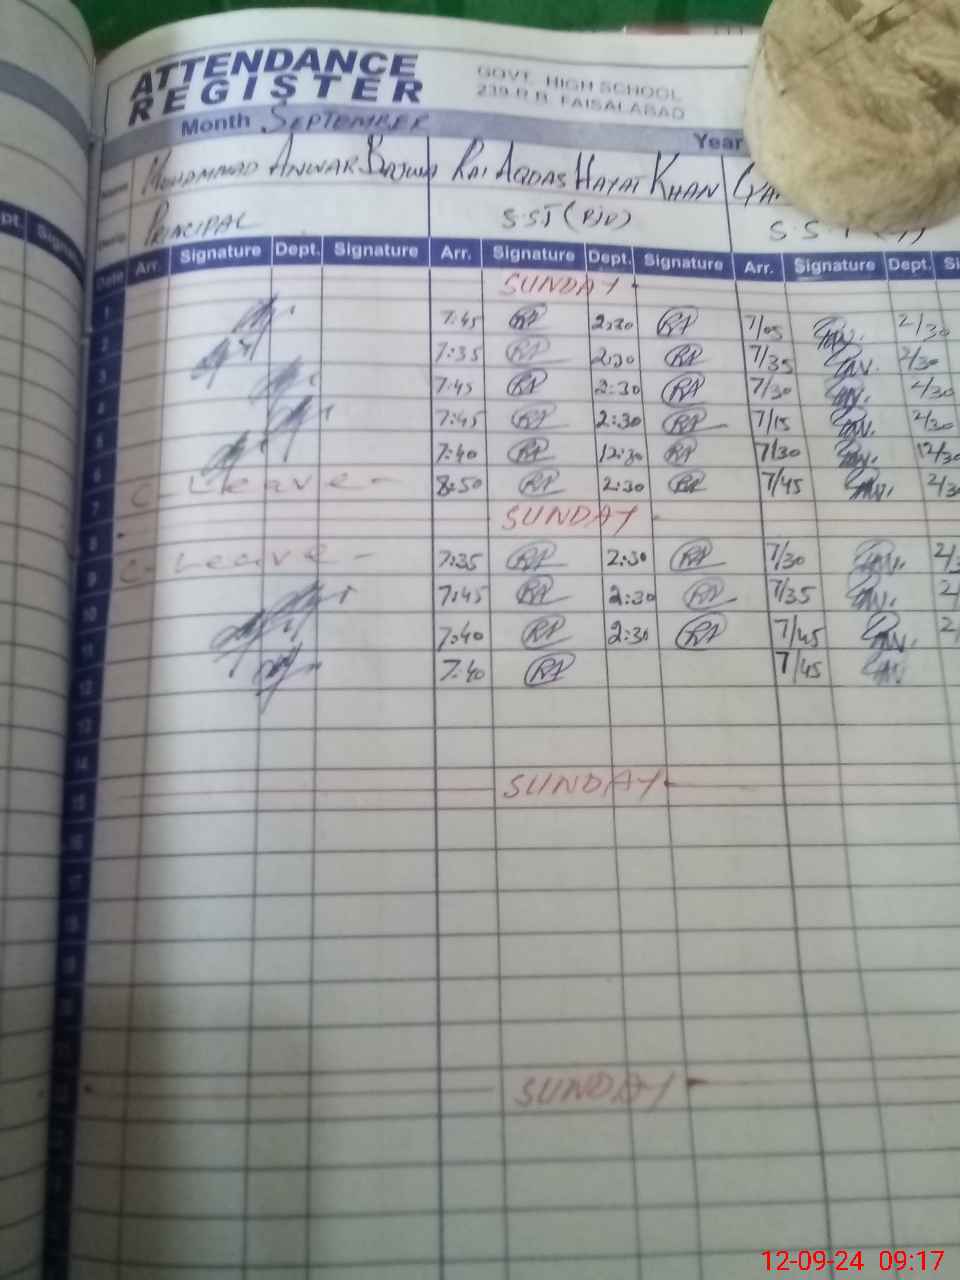 ATTENDANCE
REGISTER
GOVT. HIGH SCHOOL
239 R.B. FAISALABAD
Month SEPTEMBER
Year
Name MUHAMMAD ANWAR BAJWA RAI AQDAS HAYAT KHAN
PRINCIPAL S.S.T
Date Arr. Signature Dept. Signature Arr. Signature Dept. Signature Arr. Signature Dept. Si
1 SUNDAY
2 7:45 RA 2:30 RA 7/05 2/30
3 7:35 RA 2:30 RA 7/35 2/30
4 7:45 RA 2:30 RA 7/30 2/30
5 7:45 RA 2:30 RA 7/15 2/30
6 7:40 RA 12:30 RA 7/30 12/30
7 C-Leave- 8:50 RA 2:30 RA 7/45 2/30
8 SUNDAY
9 C-Leave- 7:35 RA 2:30 RA 7/30
10 7:45 RA 2:30 RA 7/35
11 7:40 RA 2:30 RA 7/45
12 7:40 RA 7/45
13
14
15 SUNDAY
16
17
18
19
SUNDAY
12-09-24 09:17